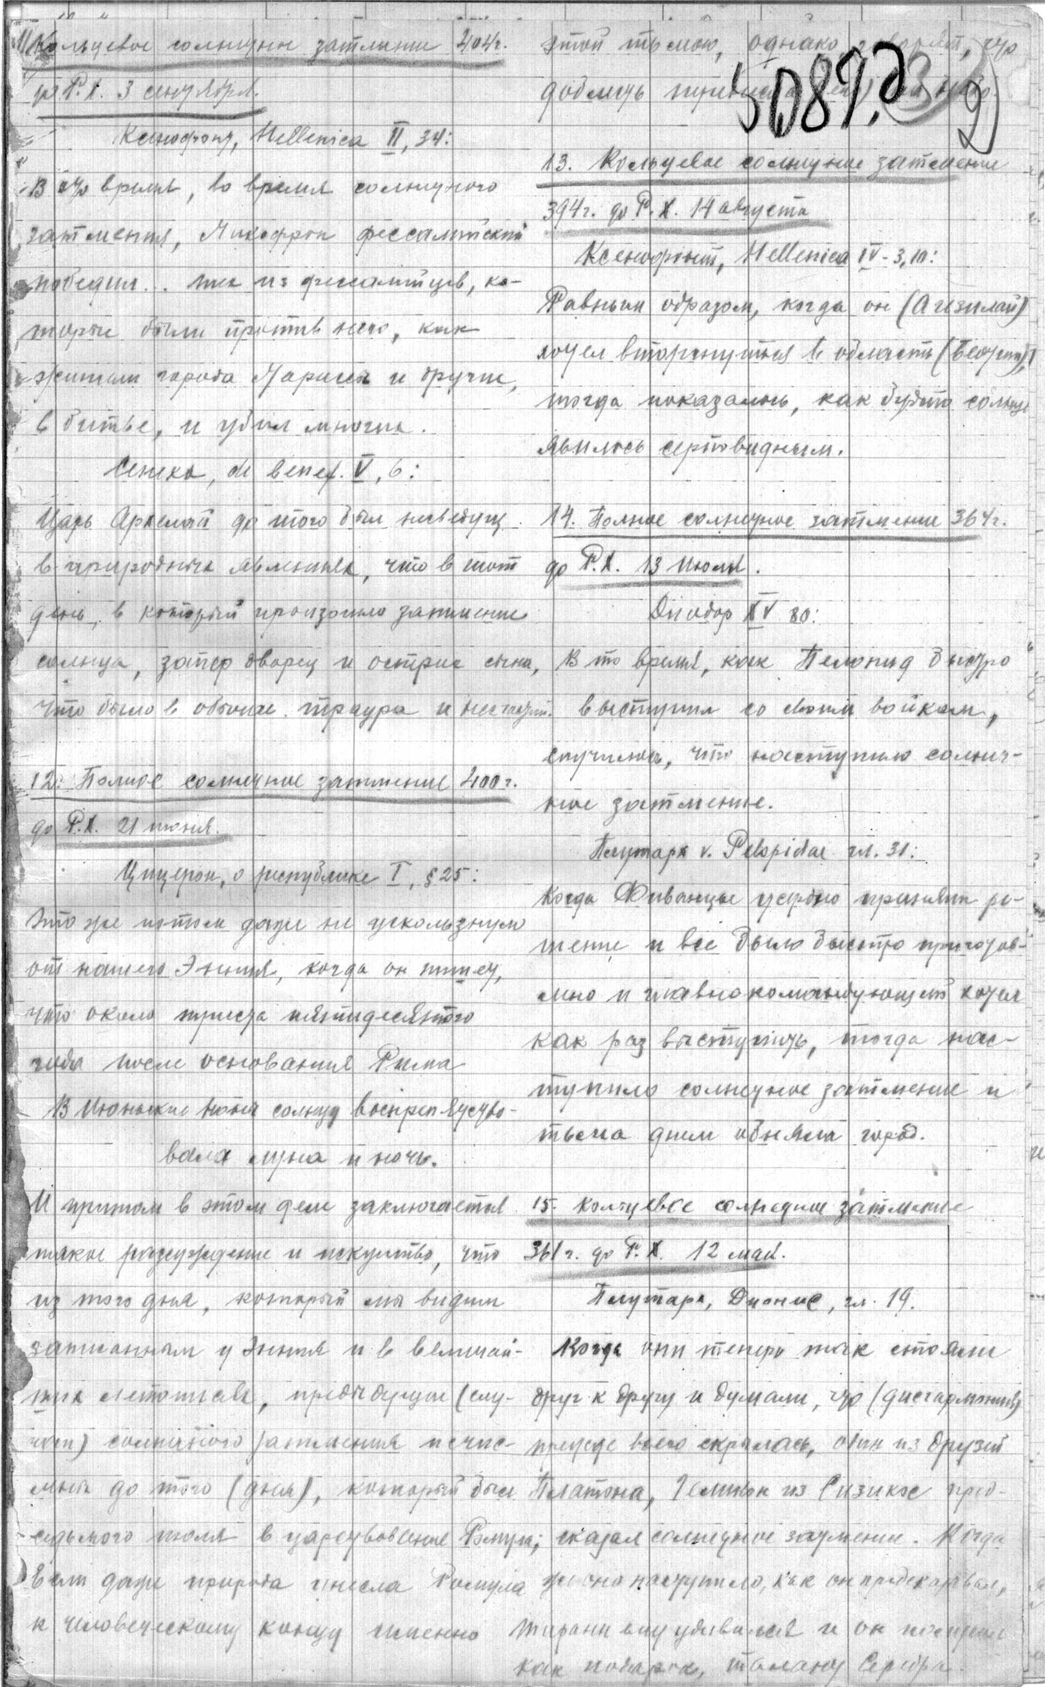 11. Кольцевое солнечное затмение 404 г.
до Р.Х. 3 сентября.
Ксенофонт, Hellenica II, 34:
В это время, во время солнечного
затмения, Ликофрон фессалийский
победил... тех из фессалийцев, ко-
торые были против него, как
жители города Лариса и другие,
в битве, и убил многих.
Сенека, de benef. V, 6:
Царь Архелай до того был несведущ
в природных явлениях, что в тот
день, в который произошло затмение
солнца, запер дворец и остриг сына,
что было в обычае траура и несчастий.
12. Полное солнечное затмение 400 г.
до Р.Х. 21 июня.
Цицерон, о республике I, § 25:
Это же потом даже не ускользнуло
от нашего Энния, когда он пишет,
что около триста пятидесятого
года после основания Рима
В Июньские ноны солнцу воспрепятство-
вала луна и ночь.
И притом в этом деле заключается
такое рассуждение и искусство, что
из того дня, который мы видим
записанным у Энния и в величай-
ших летописях, предыдущие (слу-
чаи) солнечного затмения исчис-
лены до того (дня), который был
седьмого июля в царствование Ромула;
Если даже природа унесла Ромула
к человеческому концу именно
этой тьмою, однако, говорят, что
доблесть
5087.д
2)
13. Кольцевое солнечное затмение
394 г. до Р.Х. 14 августа
Ксенофонт, Hellenica IV - 3, 10:
Равным образом, когда он (Агезилай)
хотел вторгнуться в область (Беотии),
тогда показалось, как будто солнце
явилось серповидным.
14. Полное солнечное затмение 364 г.
до Р.Х. 13 Июля.
Диодор XV 80:
В то время, как Пелопид быстро
выступил со своим войском,
случилось, что наступило солнеч-
ное затмение.
Плутарх v. Pelopidae гл. 31:
Когда Фиванцы усердно приняли ре-
шение и все было быстро приготов-
лено и главнокомандующий хотел
как раз выступить, тогда нас-
тупило солнечное затмение и
тьма днем обняла город.
15. Кольцевое солнечное затмение
361 г. до Р.Х. 12 мая.
Плутарх, Дионис, гл. 19.
Когда они теперь так стояли
друг к другу и думали, что (дисгармония)
прежде всего скрылась, один из друзей
Платона, Геликон из Сизикос пред-
сказал солнечное затмение. Когда
же оно наступило, как он предсказывал,
тиран ему удивлялся и он получил
как подарок, талант серебра.